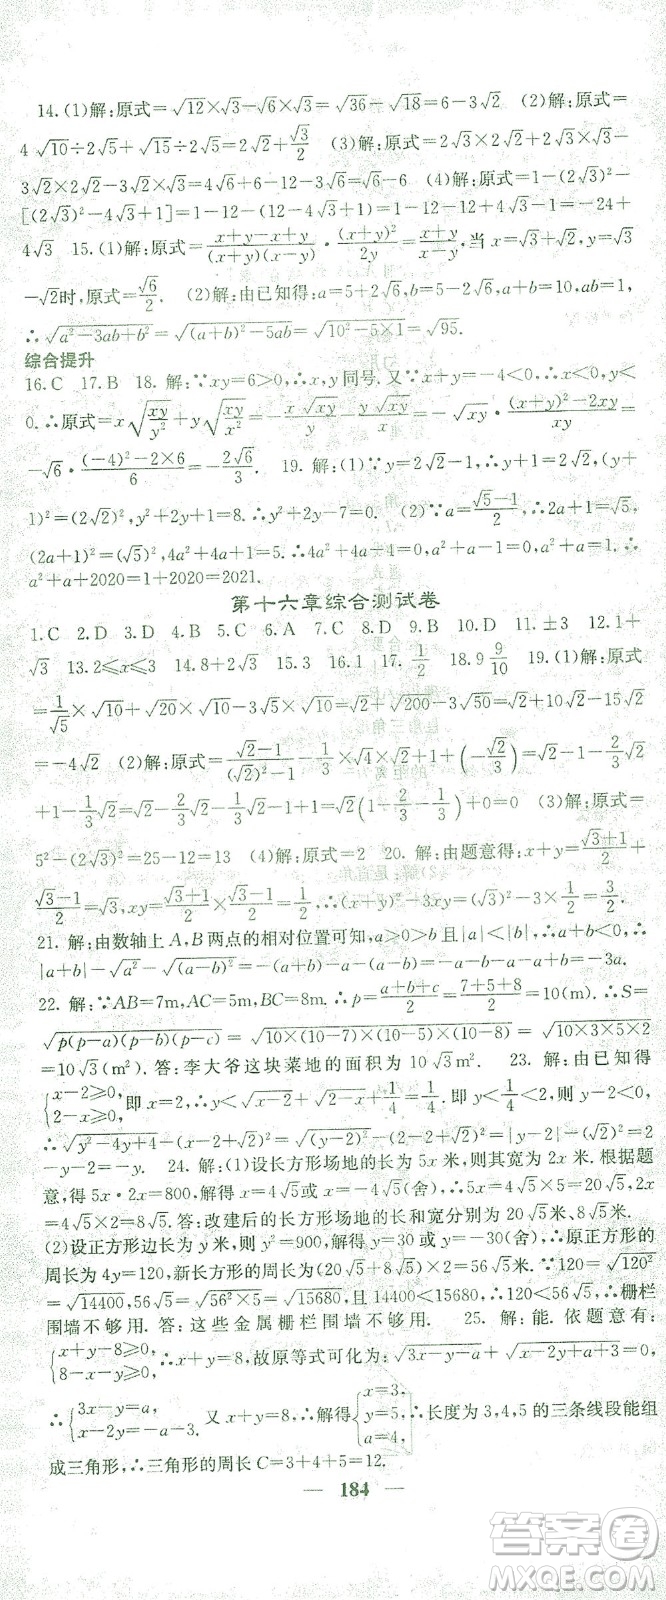 14.(1)解:原式=√12×√3-√6×√3=√36-√18=6-3√2 (2)解:原式=
4√10÷2√5+√15÷√5=2√2+√3/2 (3)解:原式=2√2×2√3+2√3×√3-
3√2×2√2-3√2×√3=4√6+6-12-3√6=√6-6 (4)解:原式=1-(2√3)²-
[(2√3)²-4√3+1]=1-12-(12-4√3+1)=1-12-12+4√3-1=-24+
4√3 15.(1)解:原式=(x+y-x+y)/((x+y)(x-y))·(x+y)²/2y=(x+y)/(x-y),当x=√3+√2,y=√3
-√2时,原式=√6/2. (2)解:由已知得:a=5+2√6,b=5-2√6,a+b=10,ab=1,
∴√(a²-3ab+b²)=√((a+b)²-5ab)=√(10²-5×1)=√95.
综合提升
16.C 17.B 18.解:∵xy=6>0,∴x,y同号.又∵x+y=-4<0,∴x<0,y<
0.∴原式=x√(xy/y²)+y√(xy/x²)=-x√xy/y-y√xy/x=-√xy·((x+y)²-2xy)/xy=
-√6·((-4)²-2×6)/6=-2√6/3. 19.解:(1)∵y=2√2-1,∴y+1=2√2,(y+
1)²=(2√2)²,y²+2y+1=8.∴y²+2y-7=0. (2)∵a=(√5-1)/2,∴2a+1=√5,
(2a+1)²=(√5)²,4a²+4a+1=5,4a²+4a=4.∴a²+a=1.∴
a²+a+2020=1+2020=2021.
第十六章综合测试卷
1.C 2.D 3.D 4.B 5.C 6.A 7.C 8.D 9.B 10.D 11.±3 12.1+
√3 13.2≤x≤3 14.8+2√3 15.3 16.1 17.1/2 18.9 9/10 19.(1)解:原式
=1/√5×√10+√20×√10-3√5×√10=√2+√200-3√50=√2+10√2-15√2
=-4√2 (2)解:原式=(√2-1)/((√2)²-1²)-1/3×√3×√2+√2+1+(-√2/3)=√2-1/3√2
+1-1/3√2=√2+(√2-1/3√2-1/3√2)+0=√2 (3)解:原式=
5²-(2√3)²=25-12=13 (4)解:原式=2 20.解:由题意得:x+y=(√3+1)/2+
(√3-1)/2=√3,xy=(√3+1)/2×(√3-1)/2=1/2,∴(x+y)²-3xy=(√3)²-3×1/2=3/2.
21.解:由数轴上A,B两点的相对位置可知,a>0>b且|a|<|b|,∴
|a+b|-√a²-√(a-b)²=-(a+b)-a-(a-b)=-a-b-a-a+b=-3a.
22.解:∵AB=7m,AC=5m,BC=8m.∴p=(a+b+c)/2=(7+5+8)/2=10(m).∴S=
√(p(p-a)(p-b)(p-c))=√(10×(10-7)×(10-5)×(10-8))=√(10×3×5×2)
=10√3(m²).答:李大爷这块菜地的面积为10√3m². 23.解:由已知得
{x-2≥0,2-x≥0,即x=2,∴y<√(x-2)+√(2-x)+1/4=1/4,∴y<1/4<2,则y-2<0,
∴√(y²-4y+4)-(x-2+√2)²=√(y-2)²-(2-2+√2)²=|y-2|-(√2)²=|y-2|-2=2
-y-2=-y. 24.解:(1)设长方形场地的长为5x米,则其宽为2x米.根据题
意,得5x·2x=800,解得x=4√5或x=-4√5(舍),∴长=4√5×5=20√5米,宽
=4√5×2=8√5米.答:改建后的长方形场地的长和宽分别为20√5米、8√5米.
(2)设正方形边长为y米,则y²=900,解得y=30或y=-30(舍),∴原正方形的
周长为4y=120,新长方形的周长为(20√5+8√5)×2=56√5.∵120=√120²
=√14400,56√5=√(56²×5)=√15680,且14400<15680,∴120<56√5,∴栅栏
围墙不够用.答:这些金属栅栏围墙不够用. 25.解:能.依题意有:
{x+y-8≥0,8-x-y≥0,∴x+y=8,故原等式可化为√(3x-y-a)+√(x-2y+a+3)=0,
∴{3x-y=a,x-2y=-a-3.又∵x+y=8,∴解得{x=3,y=5,a=4.∴长度为3,4,5的三条线段能组
成三角形,∴三角形的周长C=3+4+5=12.
— 184 —
答案卷
MXQE.COM